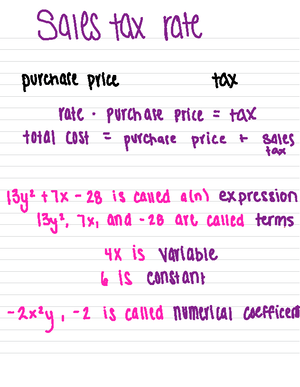 Sales tax rate
purchase price tax
rate · purchase price = tax
total cost = purchase price + sales tax
13y² + 7x - 28 is called a(n) expression
13y², 7x, and -28 are called terms
4x is variable
6 is constant
-2x²y, -2 is called numerical coefficent